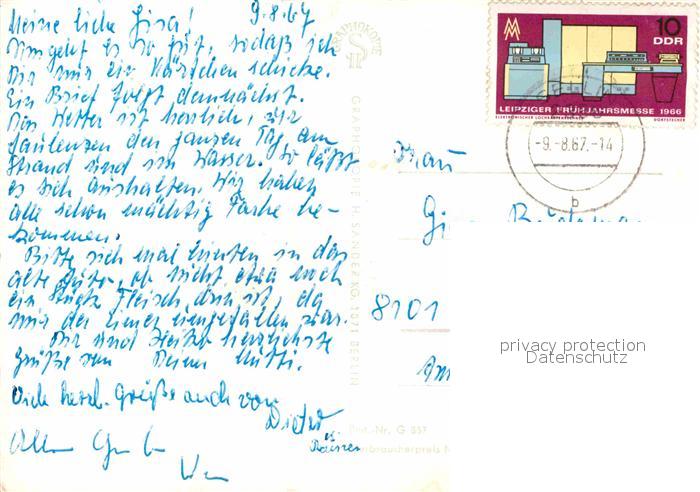 Meine liebe Gisa! 9.8.67
Uns geht es so gut, sodaß ich
Dir nur ein Kärtchen schicke.
Ein Brief folgt demnächst.
Das Wetter ist herrlich, wir
faulenzen den ganzen Tag am
Strand und im Wasser. So läßt
es sich aushalten. Wir haben
alle schon mächtig Farbe be-
kommen.
Bitte sieh mal hinten in das
alte ob nicht etwa noch
ein Stück Fleisch drin ist, da
mir der Eimer eingefallen war.
Dir und Heiko herzlichste
Grüße von Deiner Mutti.
Viele herzl. Grüße auch von
Dieter
u.
Rainer
Alles
GRAPHOKOPIE
GRAPHOKOPIE H. SANDER KG, 1071 BERLIN
Best.-Nr. G 857
Verbraucherpreis
10
DDR
LEIPZIGER FRÜHJAHRSMESSE 1966
-9.-8.67.-14
b
Frau
8101
privacy protection
Datenschutz